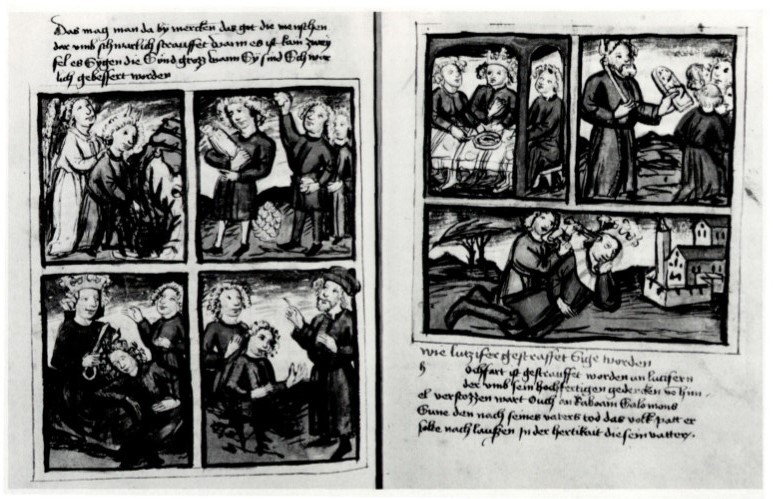 Das mag man da by mercken das got die menschen
dar vmb schwarlich strauffet wann es ist kain zwey
fel es sygen die Sünd groß wann sy sind Sch
lich gebessert worden
wie lutzifer gestraffet Sige worden
h ochfart ist gestrauffet worden an lucifern
der vmb sein hochfertigen gedencken vo him
el verstossen wart Ouch an Roboam Salomons
Sune den nach seines vaters tod das volk patt er
solte nach laussen Jn der hertikait die sein vatter